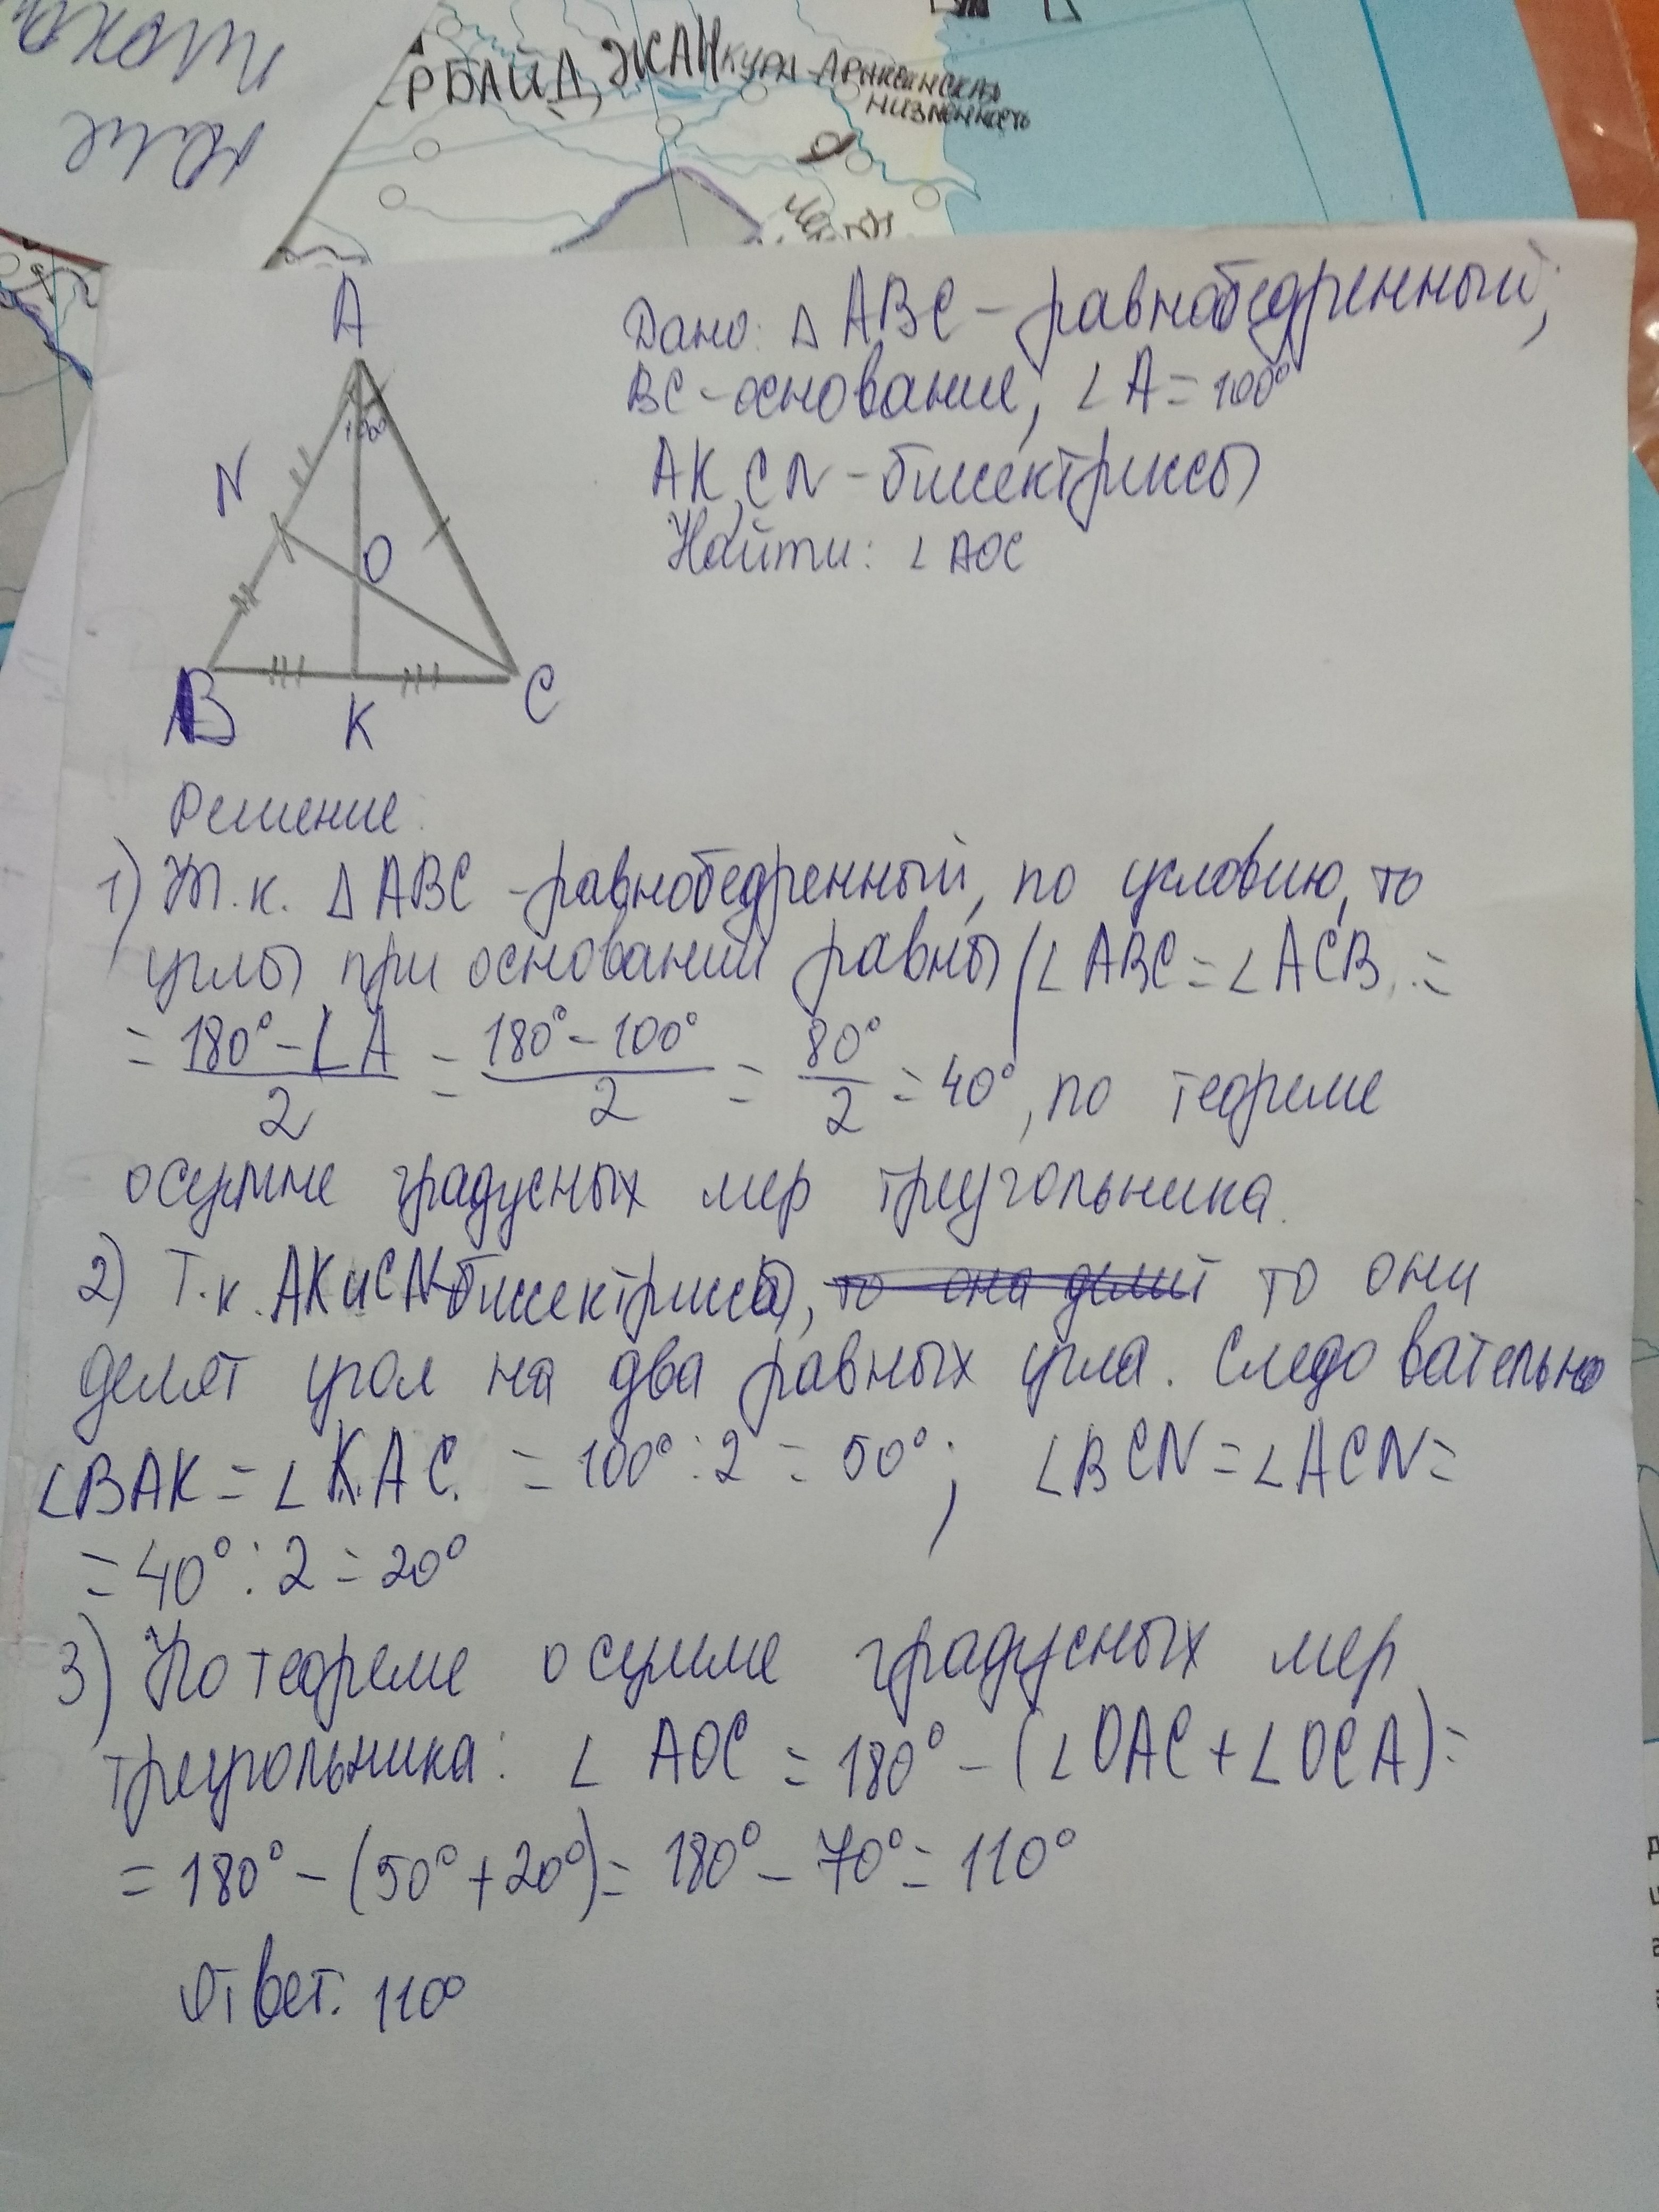 РБАЙД ЖАН
КУРА-АРАКСИНСКАЯ
НИЗМЕННОСТЬ
A
100
N
O
B
K
C
Дано: Δ ABC - равнобедренный;
BC - основание; ∠A = 100°
AK, CN - биссектрисы
Найти: ∠AOC
Решение:
1) Т.к. Δ ABC - равнобедренный, по условию, то
углы при основании равны (∠ABC = ∠ACB =
= (180° - ∠A)/2 = (180° - 100°)/2 = 80°/2 = 40°, по теореме
о сумме градусных мер треугольника.
2) Т.к. AK и CN биссектрисы, то она делит то они
делят угол на два равных угла. Следовательно
∠BAK = ∠KAC. = 100° : 2 = 50°; ∠BCN = ∠ACN =
= 40° : 2 = 20°
3) По теореме о сумме градусных мер
треугольника: ∠ AOC = 180° - (∠OAC + ∠OCA) =
= 180° - (50° + 20°) = 180° - 70° = 110°
Ответ. 110°